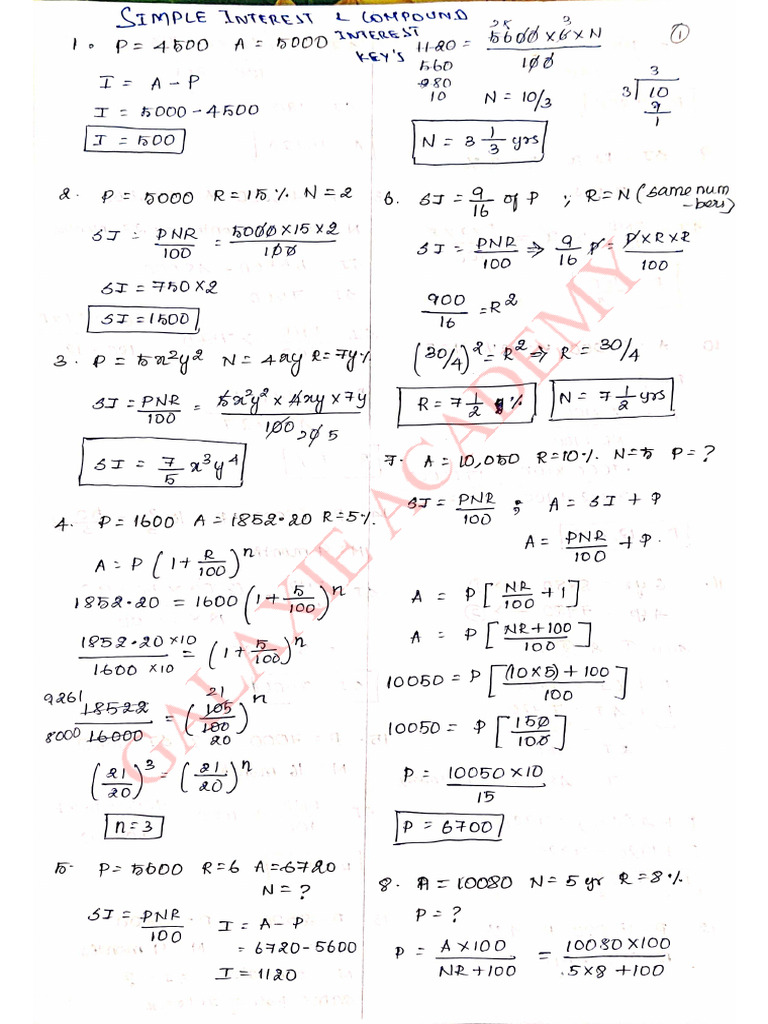 SIMPLE INTEREST & COMPOUND
INTEREST
KEY'S
1
1. P = 4500 A = 5000
I = A - P
I = 5000 - 4500
I = 500
2. P = 5000 R = 15% N = 2
SI = PNR/100 = 5000 × 15 × 2/100
SI = 750 × 2
SI = 1500
3. P = 5x²y² N = 4xy R = 7y%
SI = PNR/100 = 5x²y² × 4xy × 7y/100 20 5
SI = 7/5 x³y⁴
4. P = 1600 A = 1852.20 R = 5%.
A = P (1 + R/100)ⁿ
1852.20 = 1600 (1 + 5/100)ⁿ
1852.20 × 10/1600 × 10 = (1 + 5/100)ⁿ
9261 18522/8000 16000 = (21 105/100 20)ⁿ
(21/20)³ = (21/20)ⁿ
n = 3
5. P = 5600 R = 6 A = 6720
N = ?
SI = PNR/100
I = A - P
= 6720 - 5600
I = 1120
1120 = 5600 × 6 × N/100
28 3
560
280
10
N = 10/3
3
3) 10
9
1
N = 3 1/3 yrs
6. SI = 9/16 of P ; R = N (same num
-bers)
SI = PNR/100 ⇒ 9/16 P = P × R × R/100
900/16 = R²
(30/4)² = R² ⇒ R = 30/4
R = 7 1/2 % N = 7 1/2 yrs
7. A = 10,050 R = 10% N = 5 P = ?
SI = PNR/100 ; A = SI + P
A = PNR/100 + P.
A = P [NR/100 + 1]
A = P [NR + 100/100]
10050 = P [(10 × 5) + 100/100]
10050 = P [150/100]
P = 10050 × 10/15
P = 6700
8. A = 10080 N = 5 yr R = 8%
P = ?
P = A × 100/NR + 100 = 10080 × 100/5 × 8 + 100
GALAXIE ACADEMY